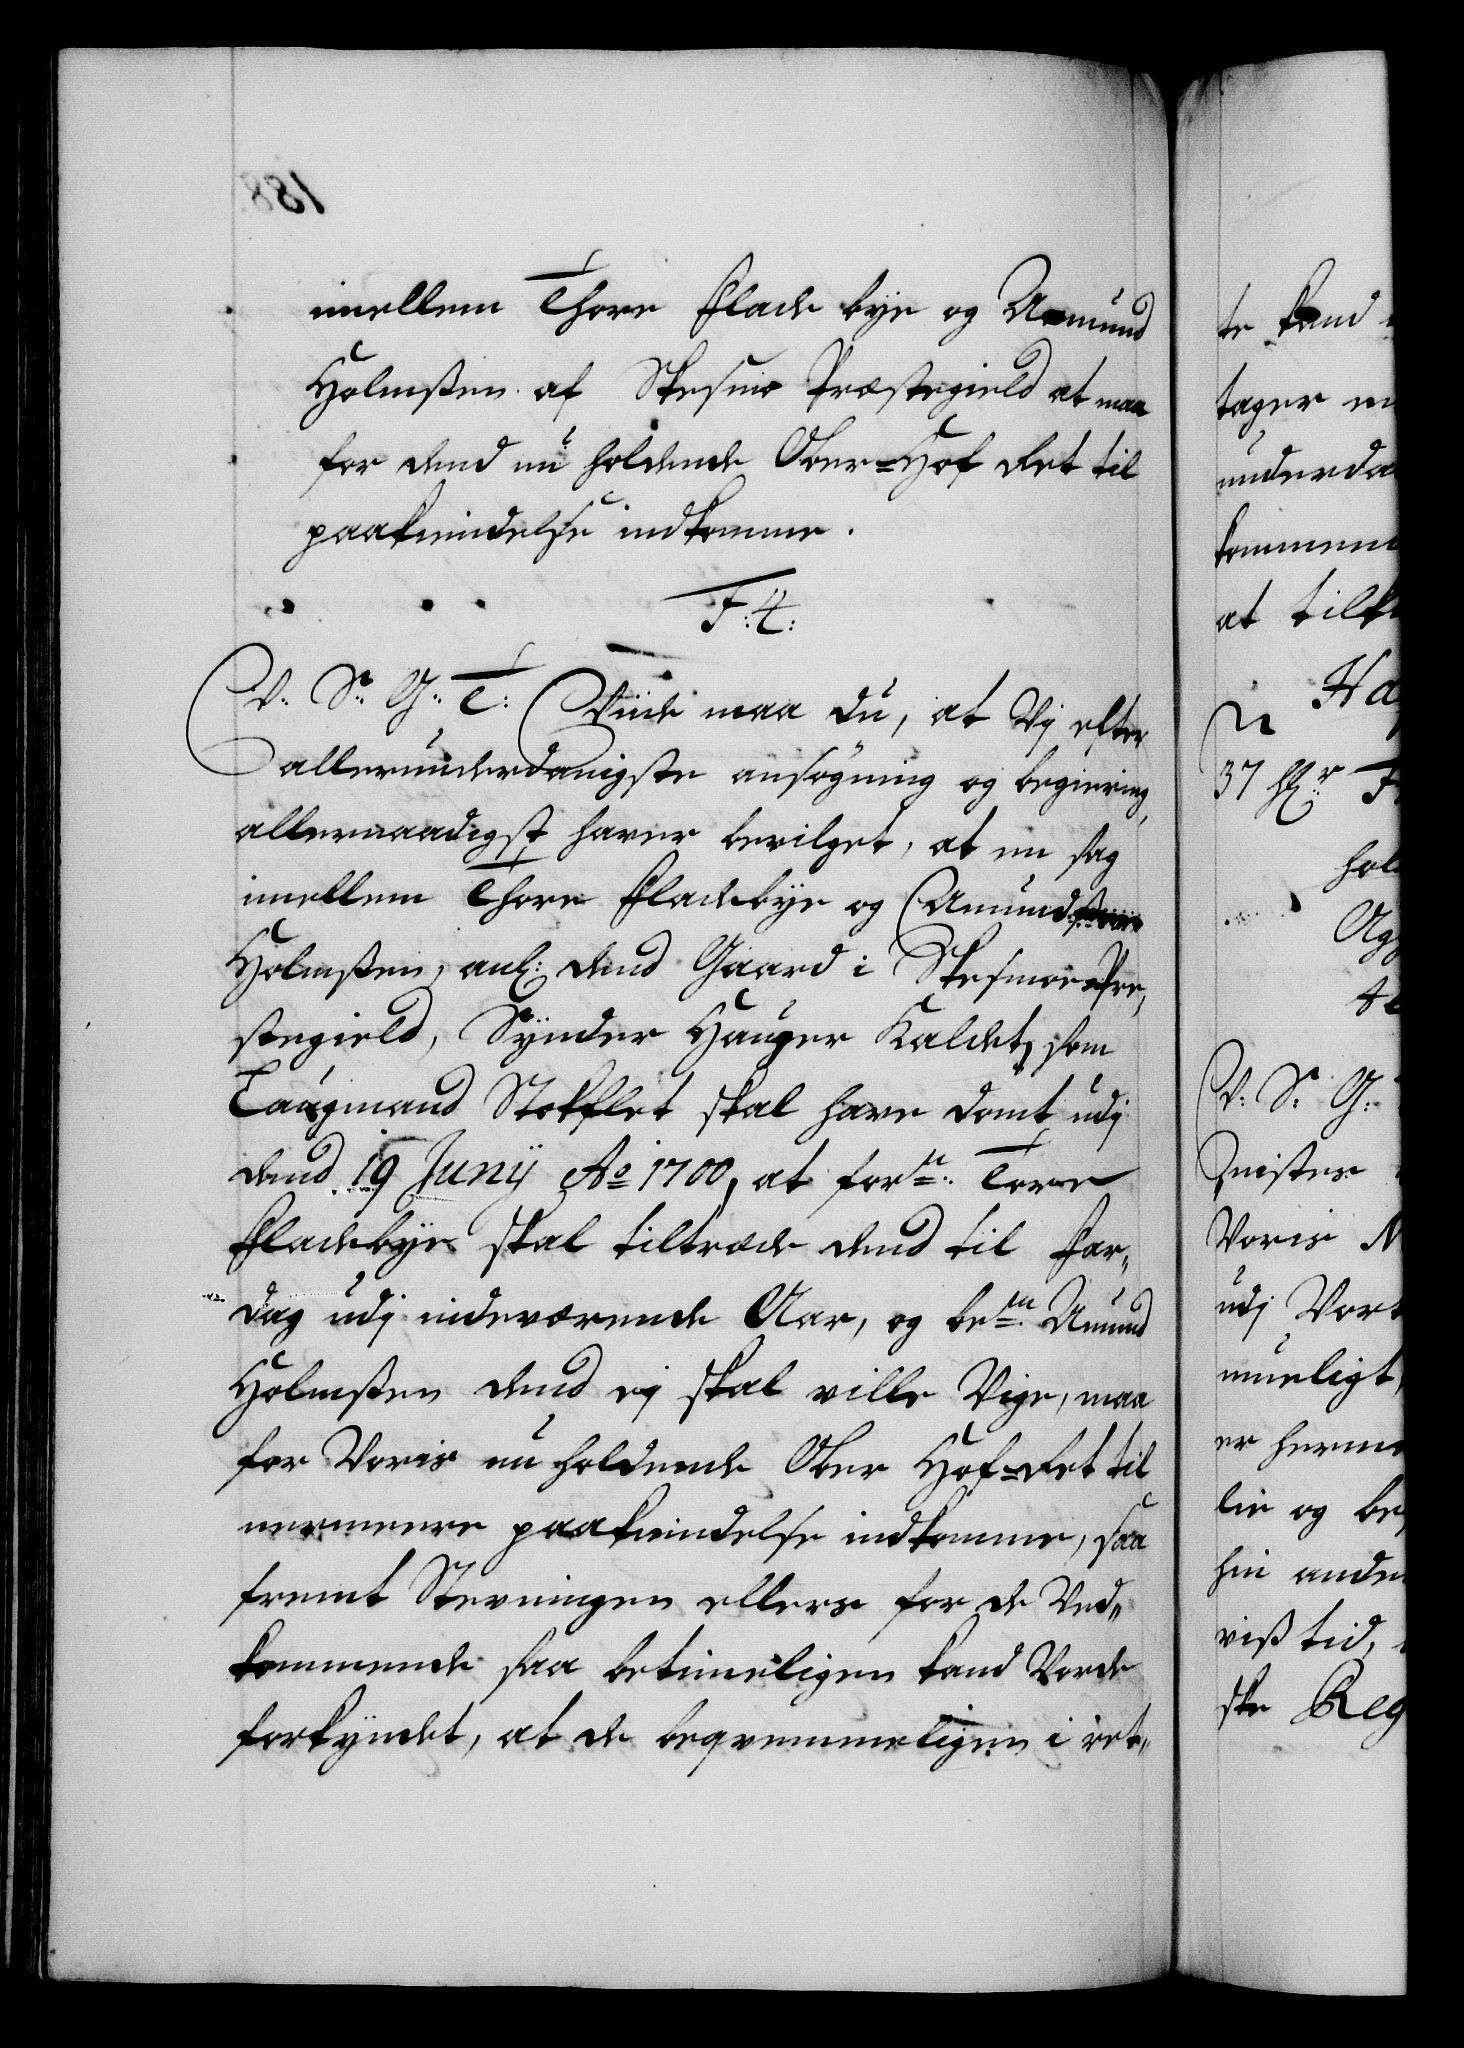 imellem Thore Fladebye og Amund
Holmsen af Skesmo Præstegield at maa
for dend nu holdende Ober-Hof Ret til
paakiendelse indkomme.
F: 4:
V: S: G: T: Viide maa du, at Vj efter
allerunderdanigste ansøgning og begiering,
allernaadigst haver bevilget, at en sag
imellem Thore Fladebye og Amund
Holmsen, anl: dend Gaard i Skesmoe Præ,
stegield, Synder Hauger Kaldet, som
Laugmand Stokflet skal have dømt udj
dend 19 Junij Ao 1700, at forne: Tore
Fladebye skal tiltræde dend til Far„
dag udj indeværende Aar, og bete: Amund
Holmsen dend ej skal ville Vige, maa
for Voris nu holdende Ober Hof-Ret til
nermeere paakiendelse indkomme, saa
fremt Stevningen ellers for de Ved„
kommende saa betimeligen kand Vorde
forkyndet, at de beqvemmeligen i ret„
te kand
tager
underda
kommen
at tilk
Ha
37
hol
Agg
V: S: G:
Voris N
udj Vort
mueligt,
er herme
lie og be
hin ande
viss tid,
ske Reg
188